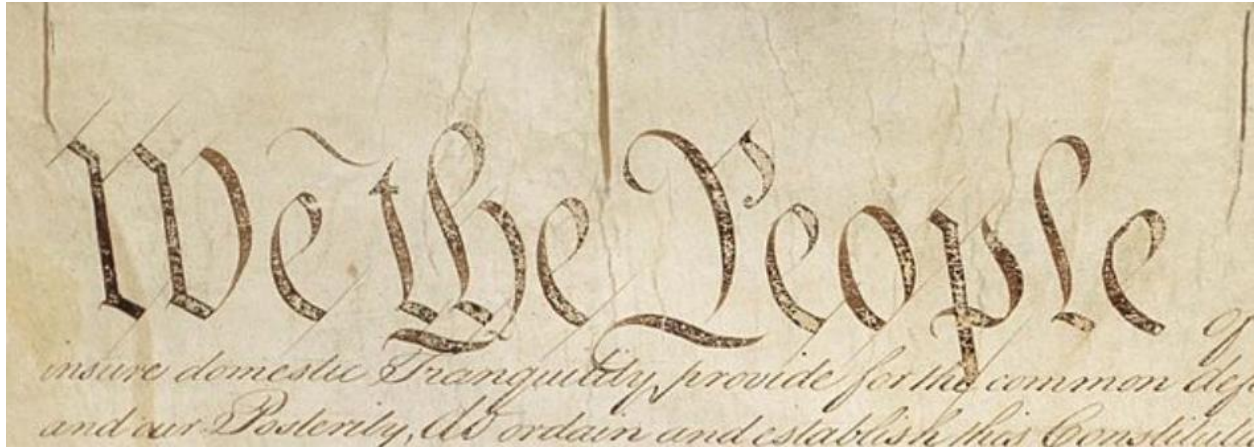 We the People of
insure domestic Tranquility, provide for the common defe
and our Posterity, do ordain and establish this Constitut